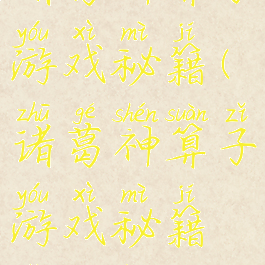 yóu xì mì jí
游戏秘籍(
zhū gě shén suàn zǐ
诸葛神算子
yóu xì mì jí
游戏秘籍